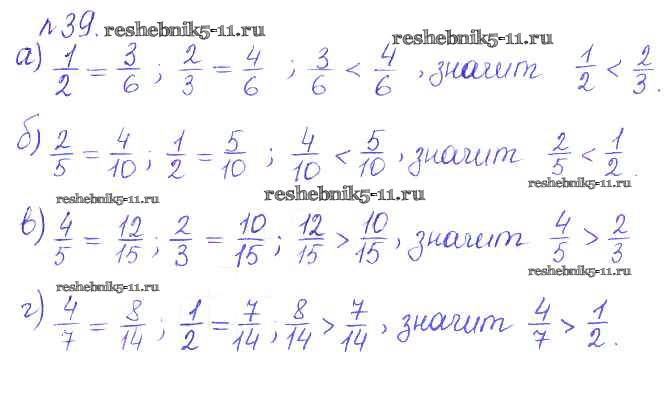 №39. reshebnik5-11.ru reshebnik5-11.ru
а) 1/2 = 3/6 ; 2/3 = 4/6 ; 3/6 < 4/6 , значит 1/2 < 2/3 .
б) 2/5 = 4/10 ; 1/2 = 5/10 ; 4/10 < 5/10 , значит 2/5 < 1/2 .
reshebnik5-11.ru reshebnik5-11.ru reshebnik5-11.ru
в) 4/5 = 12/15 ; 2/3 = 10/15 ; 12/15 > 10/15 , значит 4/5 > 2/3
reshebnik5-11.ru reshebnik5-11.ru
г) 4/7 = 8/14 ; 1/2 = 7/14 ; 8/14 > 7/14 , значит 4/7 > 1/2 .